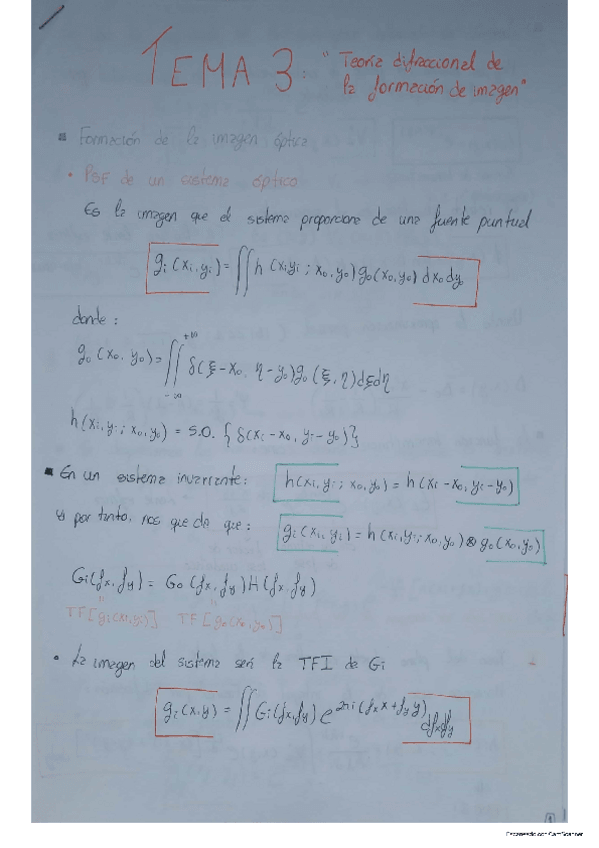 TEMA 3: "Teoría difraccional de
la formación de imagen"
Formación de la imagen óptica
• PSF de un sistema óptico
Es la imagen que el sistema proporciona de una fuente puntual
gᵢ(xᵢ,yᵢ) = ∬ h(xᵢ,yᵢ; x₀,y₀) g₀(x₀,y₀) dx₀dy₀
donde:
g₀(x₀,y₀) = ∬₋∞⁺∞ δ(ξ-x₀, η-y₀) g₀(ξ,η) dξdη
h(xᵢ,yᵢ; x₀,y₀) = S.O. {δ(xᵢ-x₀, yᵢ-y₀)}
▪ En un sistema invariante: h(xᵢ,yᵢ; x₀,y₀) = h(xᵢ-x₀, yᵢ-y₀)
y por tanto, nos queda que: gᵢ(xᵢ,yᵢ) = h(xᵢ,yᵢ; x₀,y₀) ⊗ g₀(x₀,y₀)
Gᵢ(fx,fy) = G₀(fx,fy) H(fx,fy)
TF[gᵢ(xᵢ,yᵢ)] TF[g₀(x₀,y₀)]
• La imagen del sistema será la TFI de Gᵢ
gᵢ(x,y) = ∬ Gᵢ(fx,fy) e^2πi(fx x + fy y) dfxdfy
1
Escaneado con CamScanner